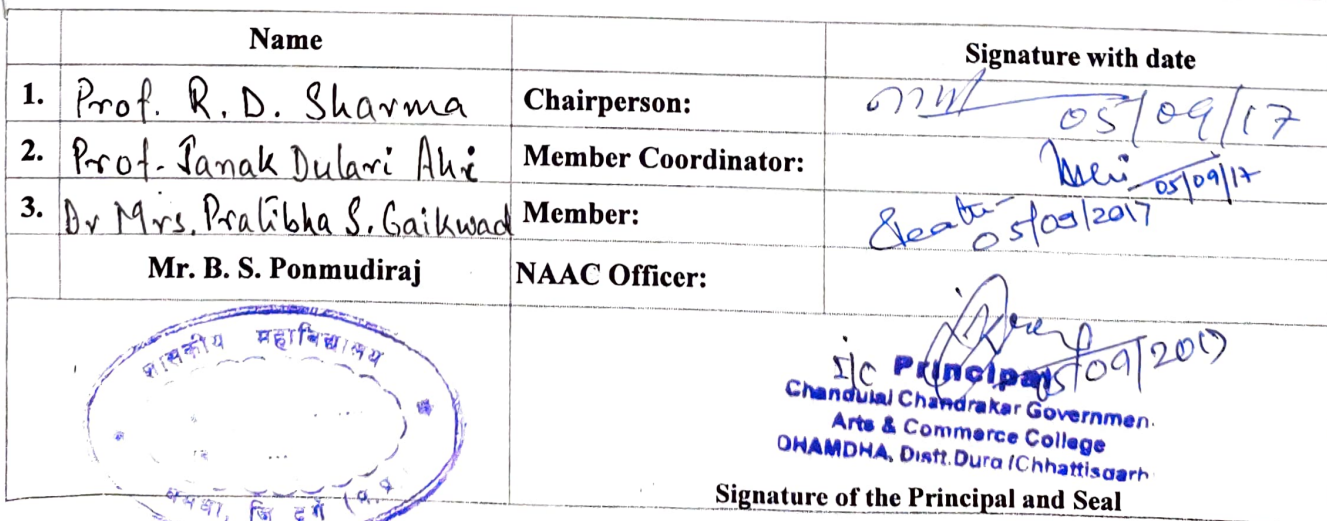 Name Signature with date
1. Prof. R. D. Sharma Chairperson: 05/09/17
2. Prof. Janak Dulari Ahi Member Coordinator: 05/09/17
3. Dr Mrs. Pratibha S. Gaikwad Member: 05/09/2017
Mr. B. S. Ponmudiraj NAAC Officer:
शासकीय महाविद्यालय
05/09/2017
I/C Principal
Chandulal Chandrakar Governmen.
Arts & Commerce College
DHAMDHA, Distt.Durg (Chhattisgarh
Signature of the Principal and Seal